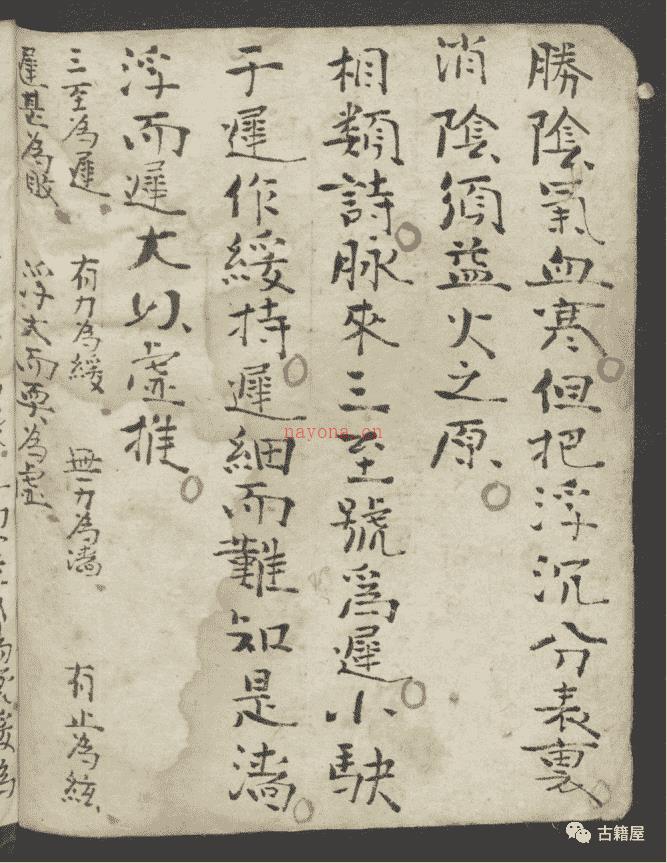 勝陰氣血寒但把浮沉分表裏
消陰須益火之原
相類詩脉來三至號爲遲小駃
于遲作緩持遲細而難知是濇
浮而遲大以虛推
三至為遲 有力為緩 無力為濇 有止為
遲甚為敗 浮大而耎為虛
nayona.cn
古籍屋